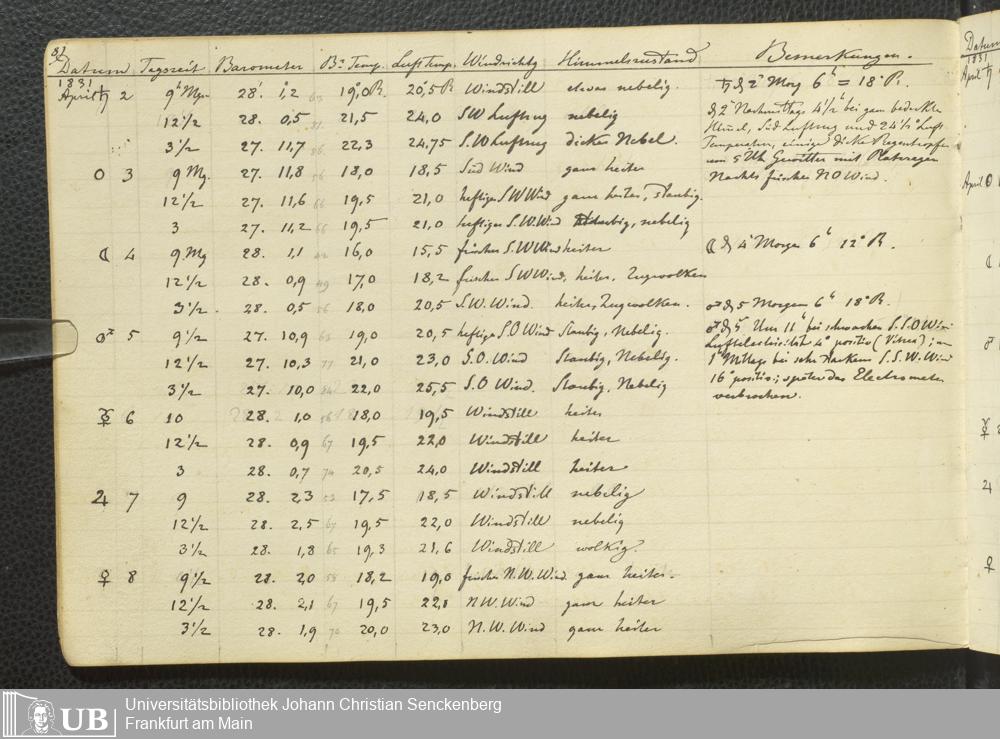 81
Datum Tagszeit Barometer Br Temp. Luft Temp. Windrichtg Himmelszustand Bemerkungen.
1831
April ♄ 2 9h Mgn 28. 1,2 19,0 R. 20,5 R Windstill etwas nebelig. ♄ d 2 Morg 6h = 18° R.
12 1/2 28. 0,5 21,5 24,0 SW Luftzug nebelig d 2 Nachmittags 4 1/2 bei ganz bedeckte
3 1/2 27. 11,7 22,3 24,75 S.W Luftzug dicker Nebel. Himmel, Süd Luftzug und 24 1/2° Luft
Temperatur, einige dicke Regentropfen
☉ 3 9 Mg. 27. 11,8 18,0 18,5 Süd Wind ganz heiter um 5 Uh Gewitter mit Platzregen
Nachts frischer N O Wind.
12 1/2 27. 11,6 66 19,5 21,0 heftiger S W Wind ganz heiter, staubig.
3 27. 11,2 66 19,5 21,0 heftiger S. W. Wind staubig, nebelig
☾ 4 9 Mg 28. 1,1 42 16,0 15,5 frischer S. W Wind heiter ☾ d 4 Morgen 6h 12° R.
12 1/2 28. 0,9 49 17,0 18,2 frischer S W Wind, heiter, Zugwolken
3 1/2 28. 0,5 56 18,0 20,5 S. W. Wind. heiter, Zugwolken. ♂ d 5 Morgen 6h 18° R.
♂ 5 9 1/2 27. 10,9 63 19,0 20,5 heftiger S. O Wind Staubig, Nebelig. ♂ d 5 Um 11h bei schwachen S. S. O Wind
Luftelectricität 4° positiv (Vitrea); um
12 1/2 27. 10,3 77 21,0 23,0 S. O. Wind Staubig, Nebelig. 1h Mittags bei sehr starken S. S. W. Wind
3 1/2 27. 10,0 84 22,0 25,5 S. O Wind. Staubig, Nebelig 16° positiv; später das Electrometer
verbrochen.
☿ 6 10 28. 1,0 56 18,0 19,5 Windstill heiter
12 1/2 28. 0,9 67 19,5 22,0 Windstill heiter
3 28. 0,7 74 20,5 24,0 Windstill heiter
♃ 7 9 28. 2,3 53 17,5 18,5 Windstill nebelig
12 1/2 28. 2,5 67 19,5 22,0 Windstill nebelig
3 1/2 28. 1,8 65 19,3 21,6 Windstill wolkig.
♀ 8 9 1/2 28. 2,0 58 18,2 19,0 frischer N. W. Wind ganz heiter.
12 1/2 28. 2,1 67 19,5 22,1 N W. Wind ganz heiter
3 1/2 28. 1,9 70 20,0 23,0 N. W. Wind ganz heiter
Datum
1831
April ♄
April ☉
☾
♂
☿
♃
♀
UB
Universitätsbibliothek Johann Christian Senckenberg
Frankfurt am Main